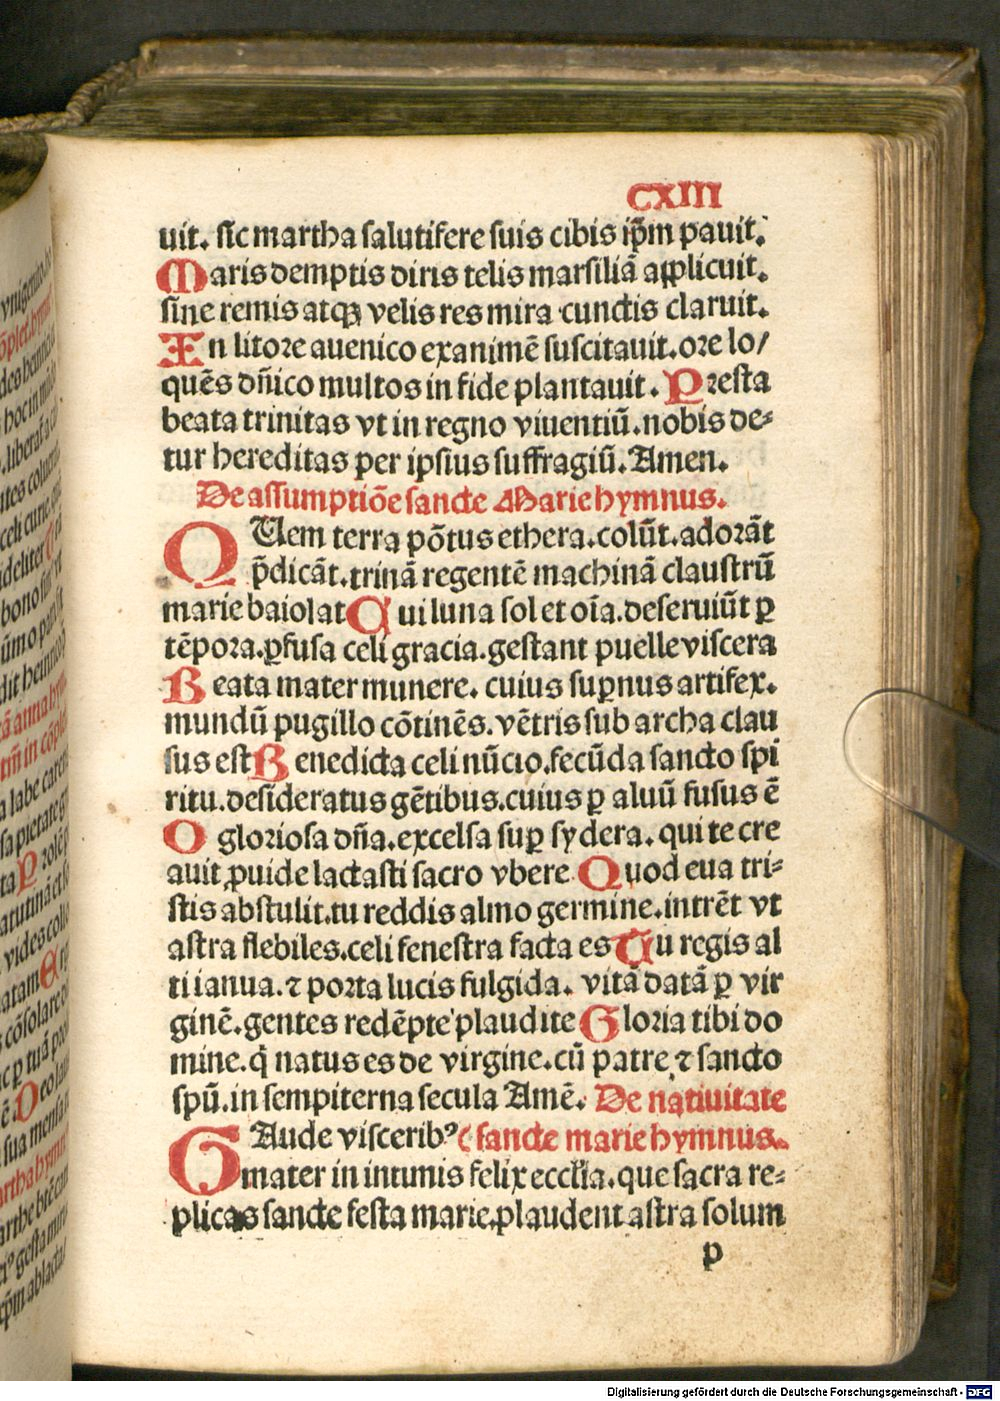 CXIII
uit. sic martha salutifere suis cibis ip̄m pauit.
Maris demptis diris telis marsiliā applicuit.
sine remis atqꝫ velis res mira cunctis claruit.
In litore auenico exanimē suscitauit. ore lo/
quēs dn̄ico multos in fide plantauit. Presta
beata trinitas vt in regno viuentiū. nobis de⸗
tur hereditas per ipsius suffragiū. Amen.
De assumptiōe sancte Marie hymnus.
QUem terra pōtus ethera. colūt. adorāt
p̄dicāt. trinā regentē machinā claustrū
marie baiolat Cui luna sol et oīa. deseruiūt ꝑ
tēpora. ꝑfusa celi gracia. gestant puelle viscera
Beata mater munere. cuius suꝑnus artifex.
mundū pugillo cōtinēs. vētris sub archa clau
sus est Benedicta celi nūcio. fecūda sancto spi
ritu. desideratus gētibus. cuius ꝑ aluū fusus ē
O gloriosa dn̄a. excelsa suꝑ sydera. qui te cre
auit ꝓuide lactasti sacro vbere Quod eua tri⸗
stis abstulit. tu reddis almo germine. intrēt vt
astra flebiles. celi fenestra facta es Tu regis al
ti ianua. ⁊ porta lucis fulgida. vitā datā ꝑ vir
ginē. gentes redēpte plaudite Gloria tibi do
mine. q̄ natus es de virgine. cū patre ⁊ sancto
spū. in sempiterna secula Amē. De natiuitate
GAude visceribꝰ ( sancte marie hymnus.
mater in intimis felix eccl̄ia. que sacra re⸗
plicas sancte festa marie, plaudent astra solum
p
Digitalisierung gefördert durch die Deutsche Forschungsgemeinschaft - DFG